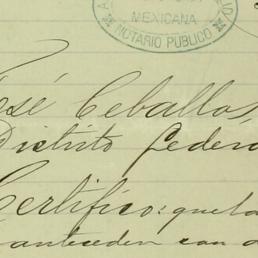 MEXICANA
NOTARIO PUBLICO
José Ceballos,
Distrito Federa
Certifico: que la
anteceden con